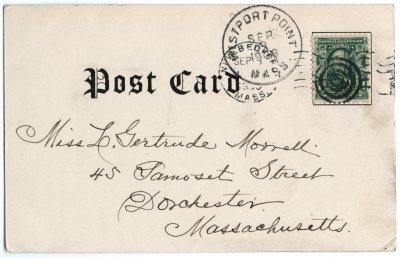 WESTPORT POINT
SEP
MASS.
Post Card
Miss L. Gertrude Morrell.
45 Samoset Street
Dorchester
Massachusetts.